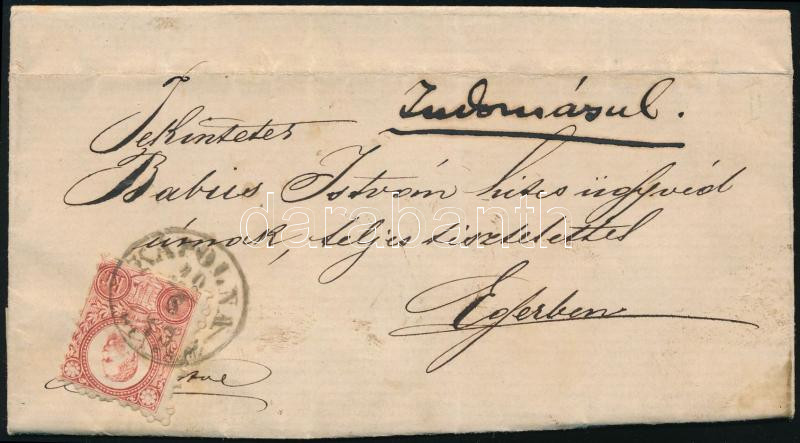 Tudomásul.
Tekintetes
Babics István hites ügyvéd
úrnak, teljes tisztelettel
Egerben
KÁPOLNA
darabanth